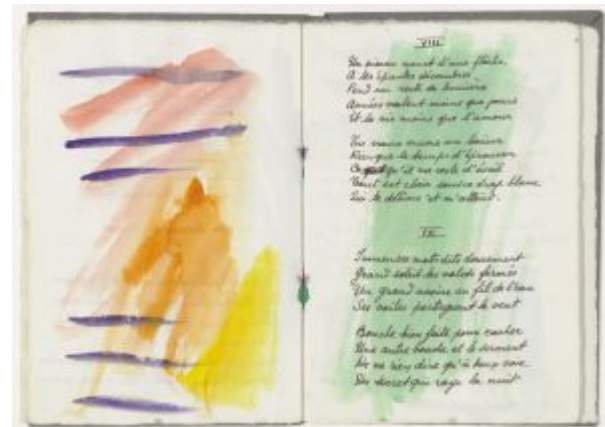 VIII
Un oiseau naît d'une flèche
A les épaules
Perd un reste de lumière
Années valent moins que jours
Et la vie moins que l'amour
Tu
Rien que le temps d'éprouver
Ce qu'il me reste d'éveil
Tout est clair sous ce drap blanc
Qui te délivre et m'attend.
IX
Immenses mots dits doucement
Grand soleil les volets fermés
Un grand navire au fil de l'eau
Ses voiles partagent le vent
Bouche bien faite pour cacher
Une autre bouche et le serment
De ne rien dire qu'à deux voix
Du secret qui raye la nuit.